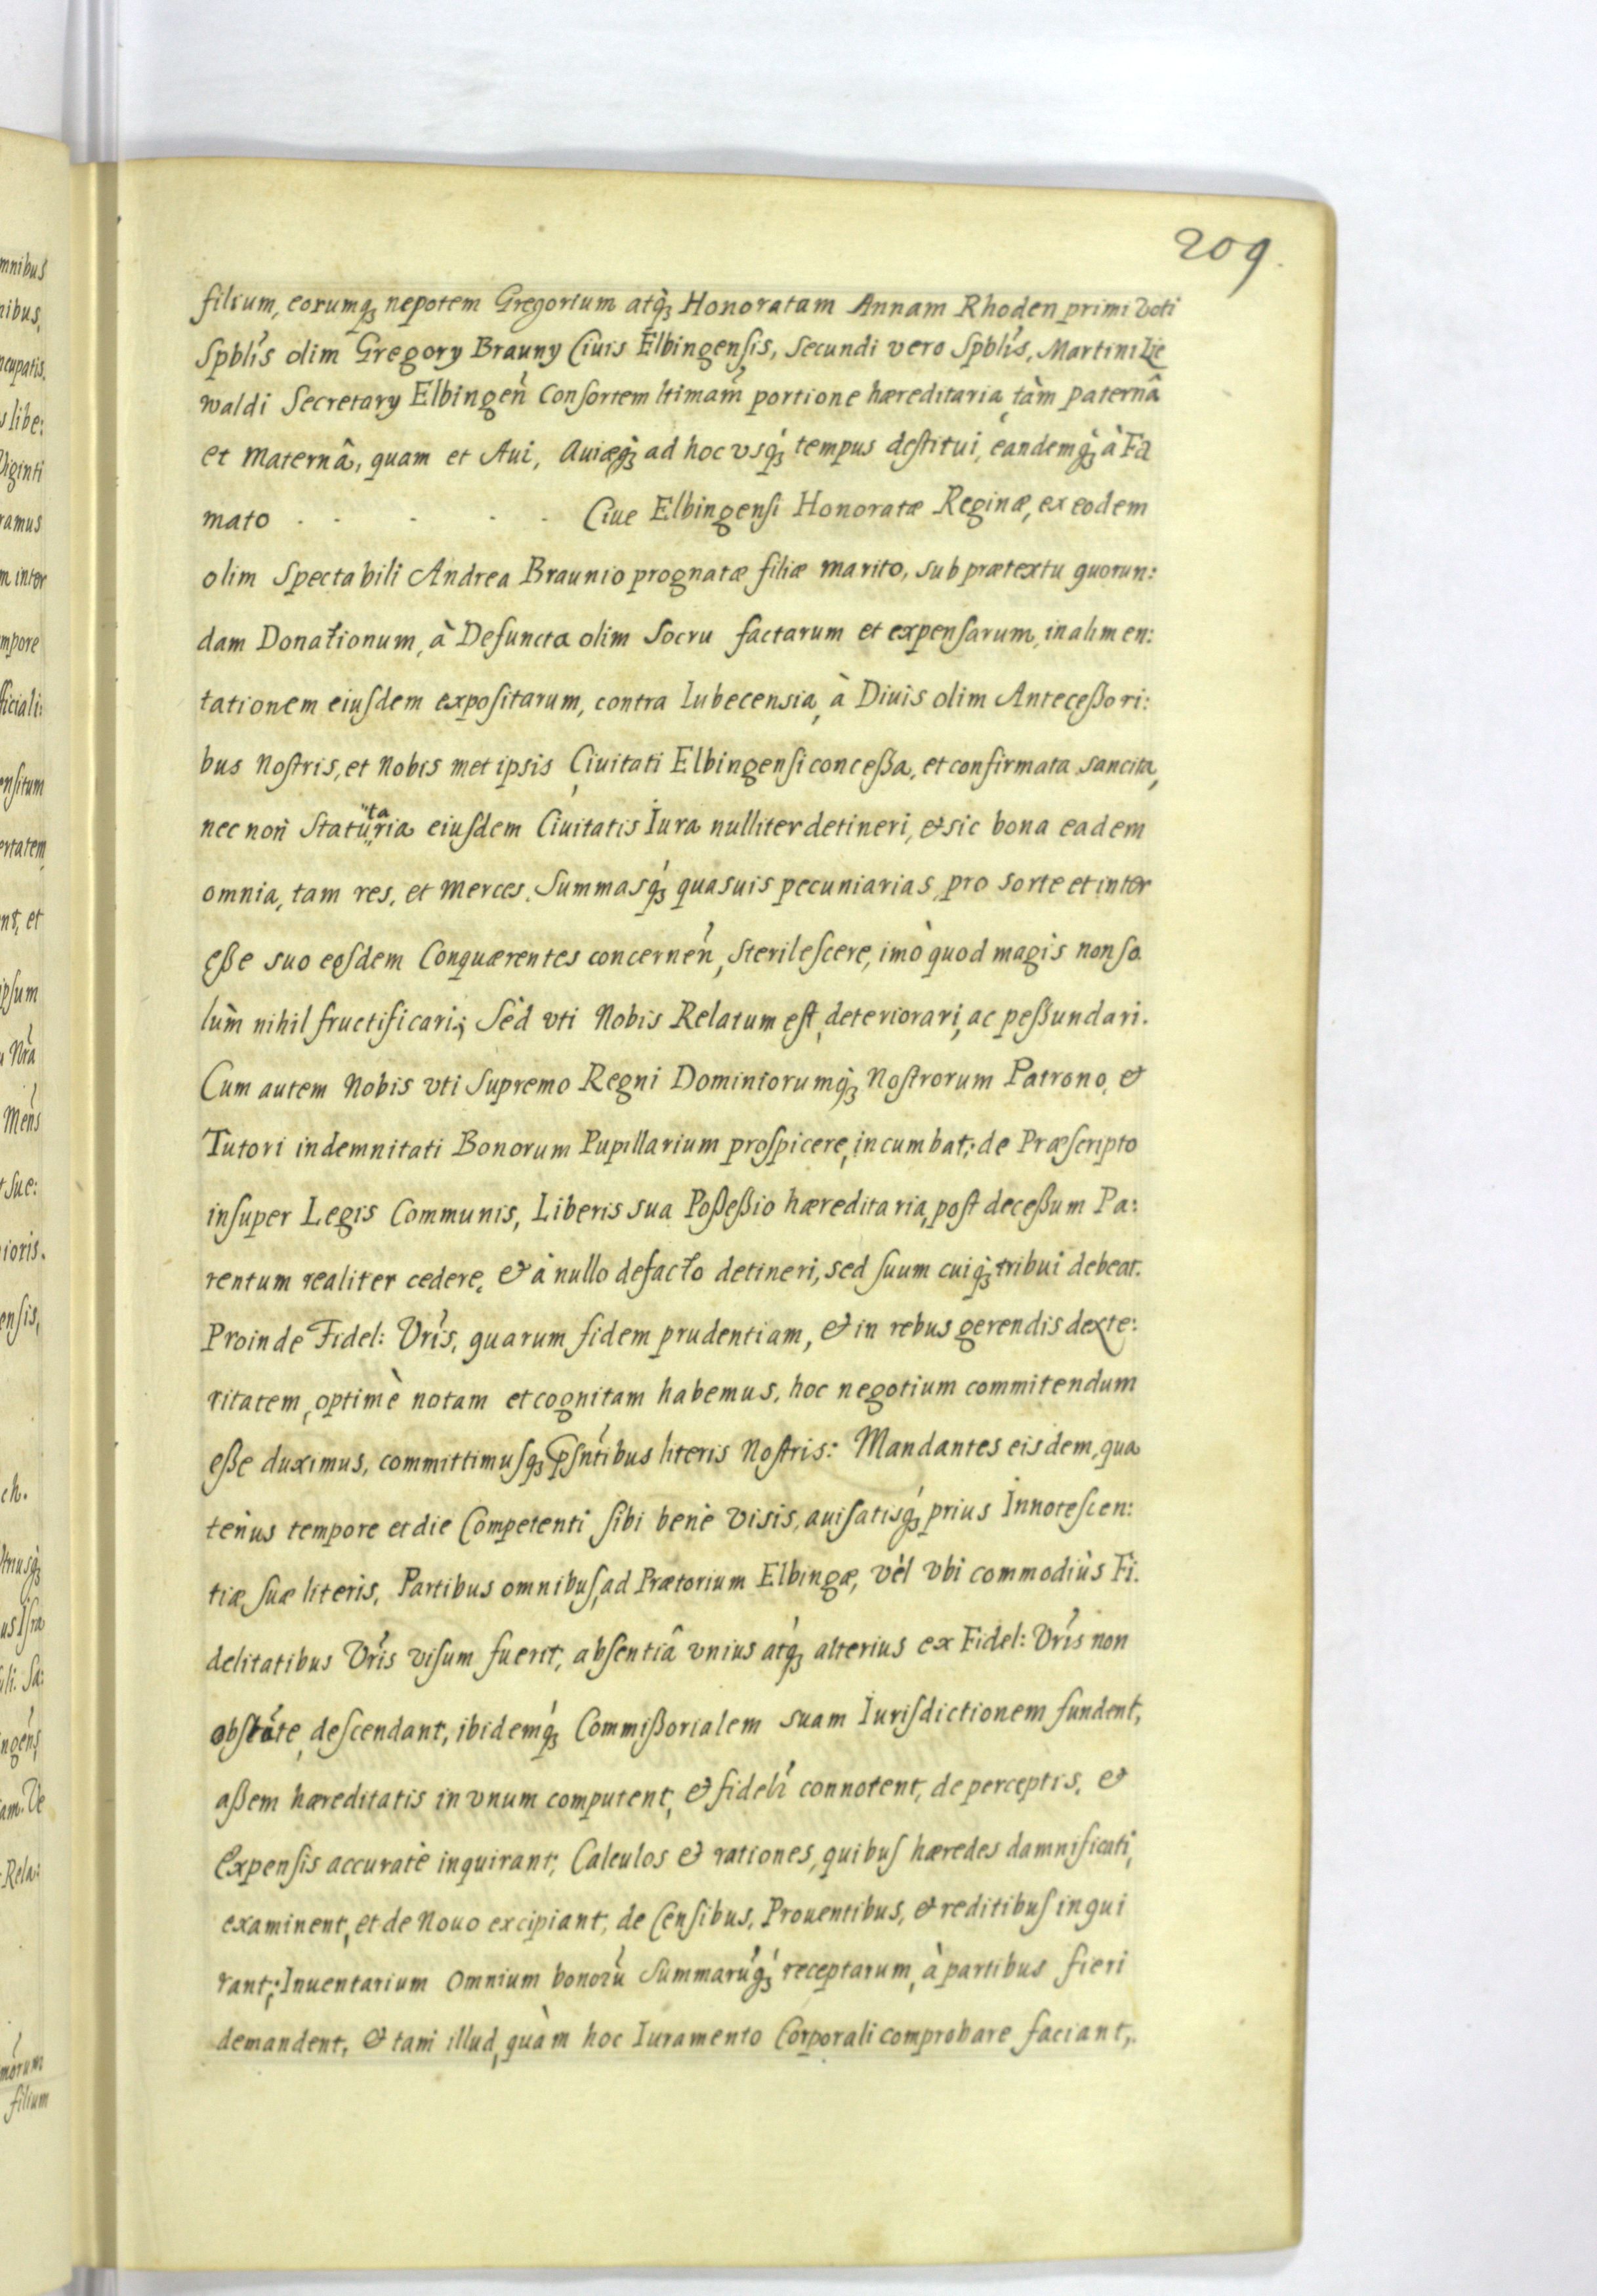 209.
filium, eorumq; nepotem Gregorium atq; Honoratam Annam Rhoden primi voti
Spbłis olim Gregory Brauny Ciuis Elbingensis, Secundi vero Spbłis, Martini Lie
waldi Secretary Elbingeń Consortem ltimam̃ portione hæreditaria, tàm paternâ
et Maternâ, quam et Aui, Auiæq; ad hoc vsq; tempus destitui, eandemq; à Fa
mato . . . . . Ciue Elbingensi Honoratæ Reginæ, ex eodem
olim Spectabili Andrea Braunio prognatæ filiæ marito, sub prætextu quorun:
dam Donationum, à Defuncta olim Socru factarum et expensarum, in alimen:
tationem eiusdem expositarum, contra Lubecensia, à Diuis olim Anteceßori:
bus Nostris, et Nobis met ipsis Ciuitati Elbingensi conceßa, et confirmata sancita,
nec non Staturia ta eiusdem Ciuitatis Iura nulliter detineri, & sic bona eadem
omnia, tam res, et merces, Summasq; quasuis pecuniarias, pro sorte et inter
eße suo eosdem Conquærentes concerneń, sterilescere, imò quod magis non so
lùm nihil fructificari; Sèd vti Nobis Relatum est, deteriorari, ac peßundari.
Cum autem Nobis vti Supremo Regni Dominiorumq; Nostrorum Patrono, &
Tutori indemnitati Bonorum Pupillarium prospicere, incumbat; de Præscripto
insuper Legis Communis, Liberis sua Poßeßio hæreditaria, post deceßum Pa:
rentum realiter cedere, & à nullo defacto detineri, sed suum cuiq; tribui debeat.
Proinde Fidel: Vris, quarum fidem prudentiam, & in rebus gerendis dexte:
ritatem, optimè notam et cognitam habemus, hoc negotium commitendum
eße duximus, committimusq; pśntibus literis Nostris: Mandantes eisdem, qua
tenus tempore et die Competenti sibi benè visis, auisatisq; prius Innotescen:
tiæ suæ literis, Partibus omnibus, ad Prætorium Elbingæ, vèl vbi commodiùs Fi.
delitatibus Vris visum fuerit, absentiâ vnius atq; alterius ex Fidel: Vris non
obstãte, descendant, ibidemq; Commißorialem suam Iurisdictionem fundent,
aßem hæreditatis in vnum computent, & fidelr connotent, de perceptis, &
Expensis accuratè inquirant; Calculos & rationes, quibus hæredes damnificati,
examinent, et de Nouo excipiant, de Censibus, Prouentibus, & reditibus inqui
rant; Inuentarium Omnium bonorũ Summarũq; receptarum, à partibus fieri
demandent, & tam illud, quàm hoc Iuramento Corporali comprobare faciant,